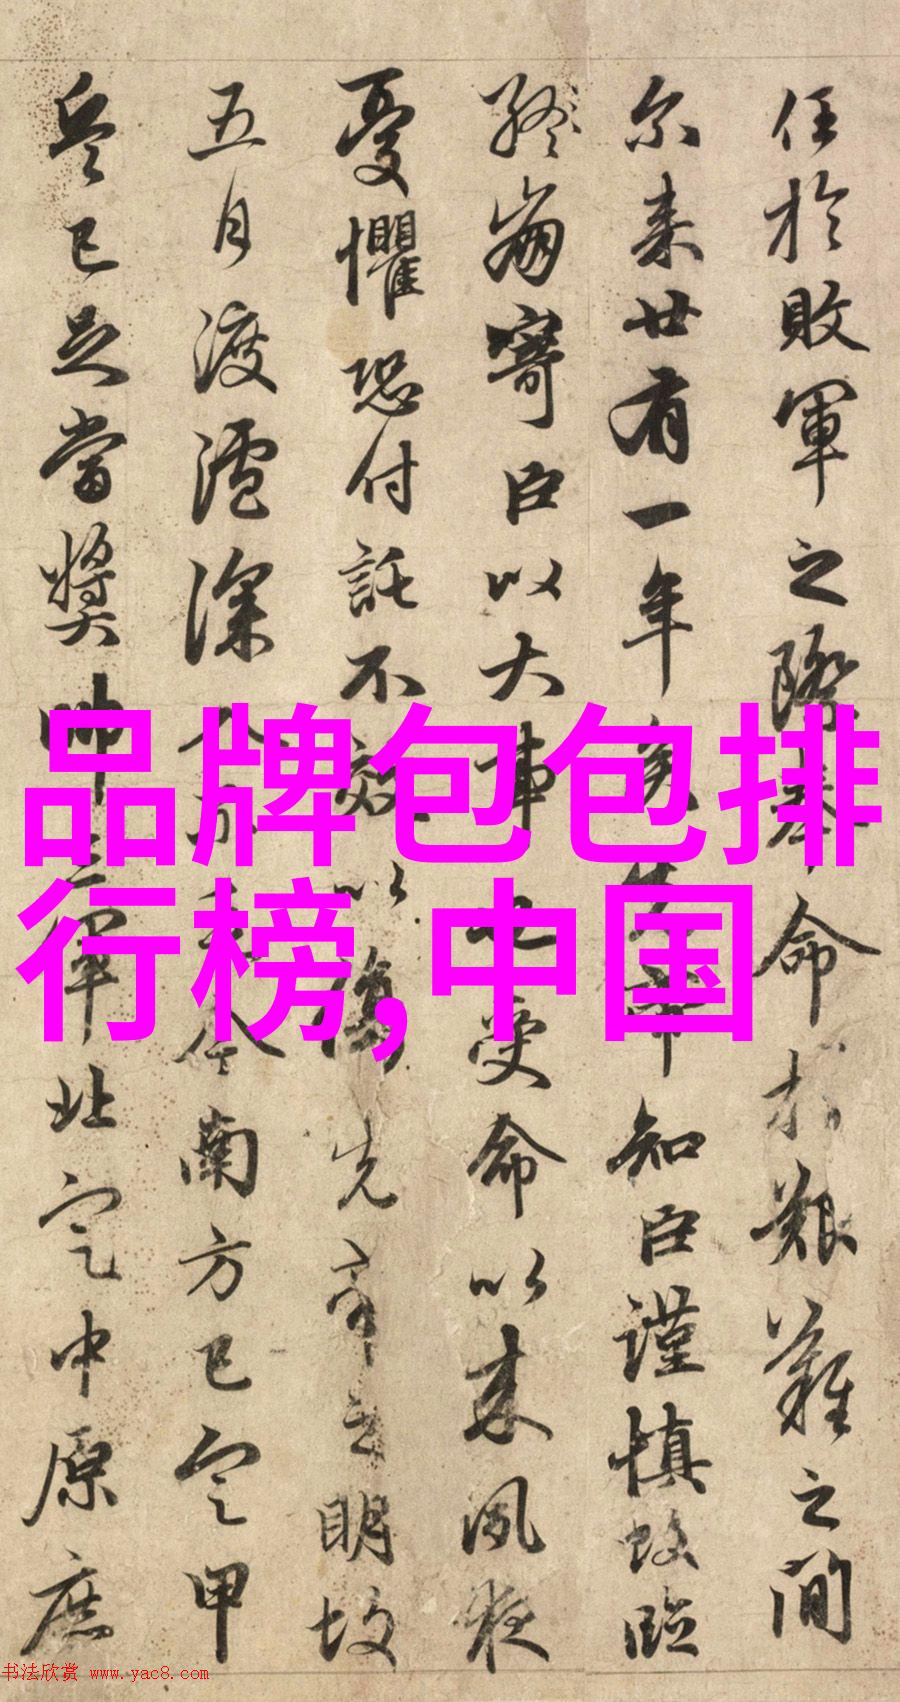 任於敗軍之際奉命於艱難之間
尔来廿有一年矣先帝知臣謹慎故臨
終崩寄臣以大事也受命以来夙夜
憂懼恐付託不效以傷先帝之明故
五月渡瀘深入不毛今南方已定甲
兵已足當奬帥三軍北定中原庶
品牌包包排
行榜,中国
书法欣赏 www.yac8.com